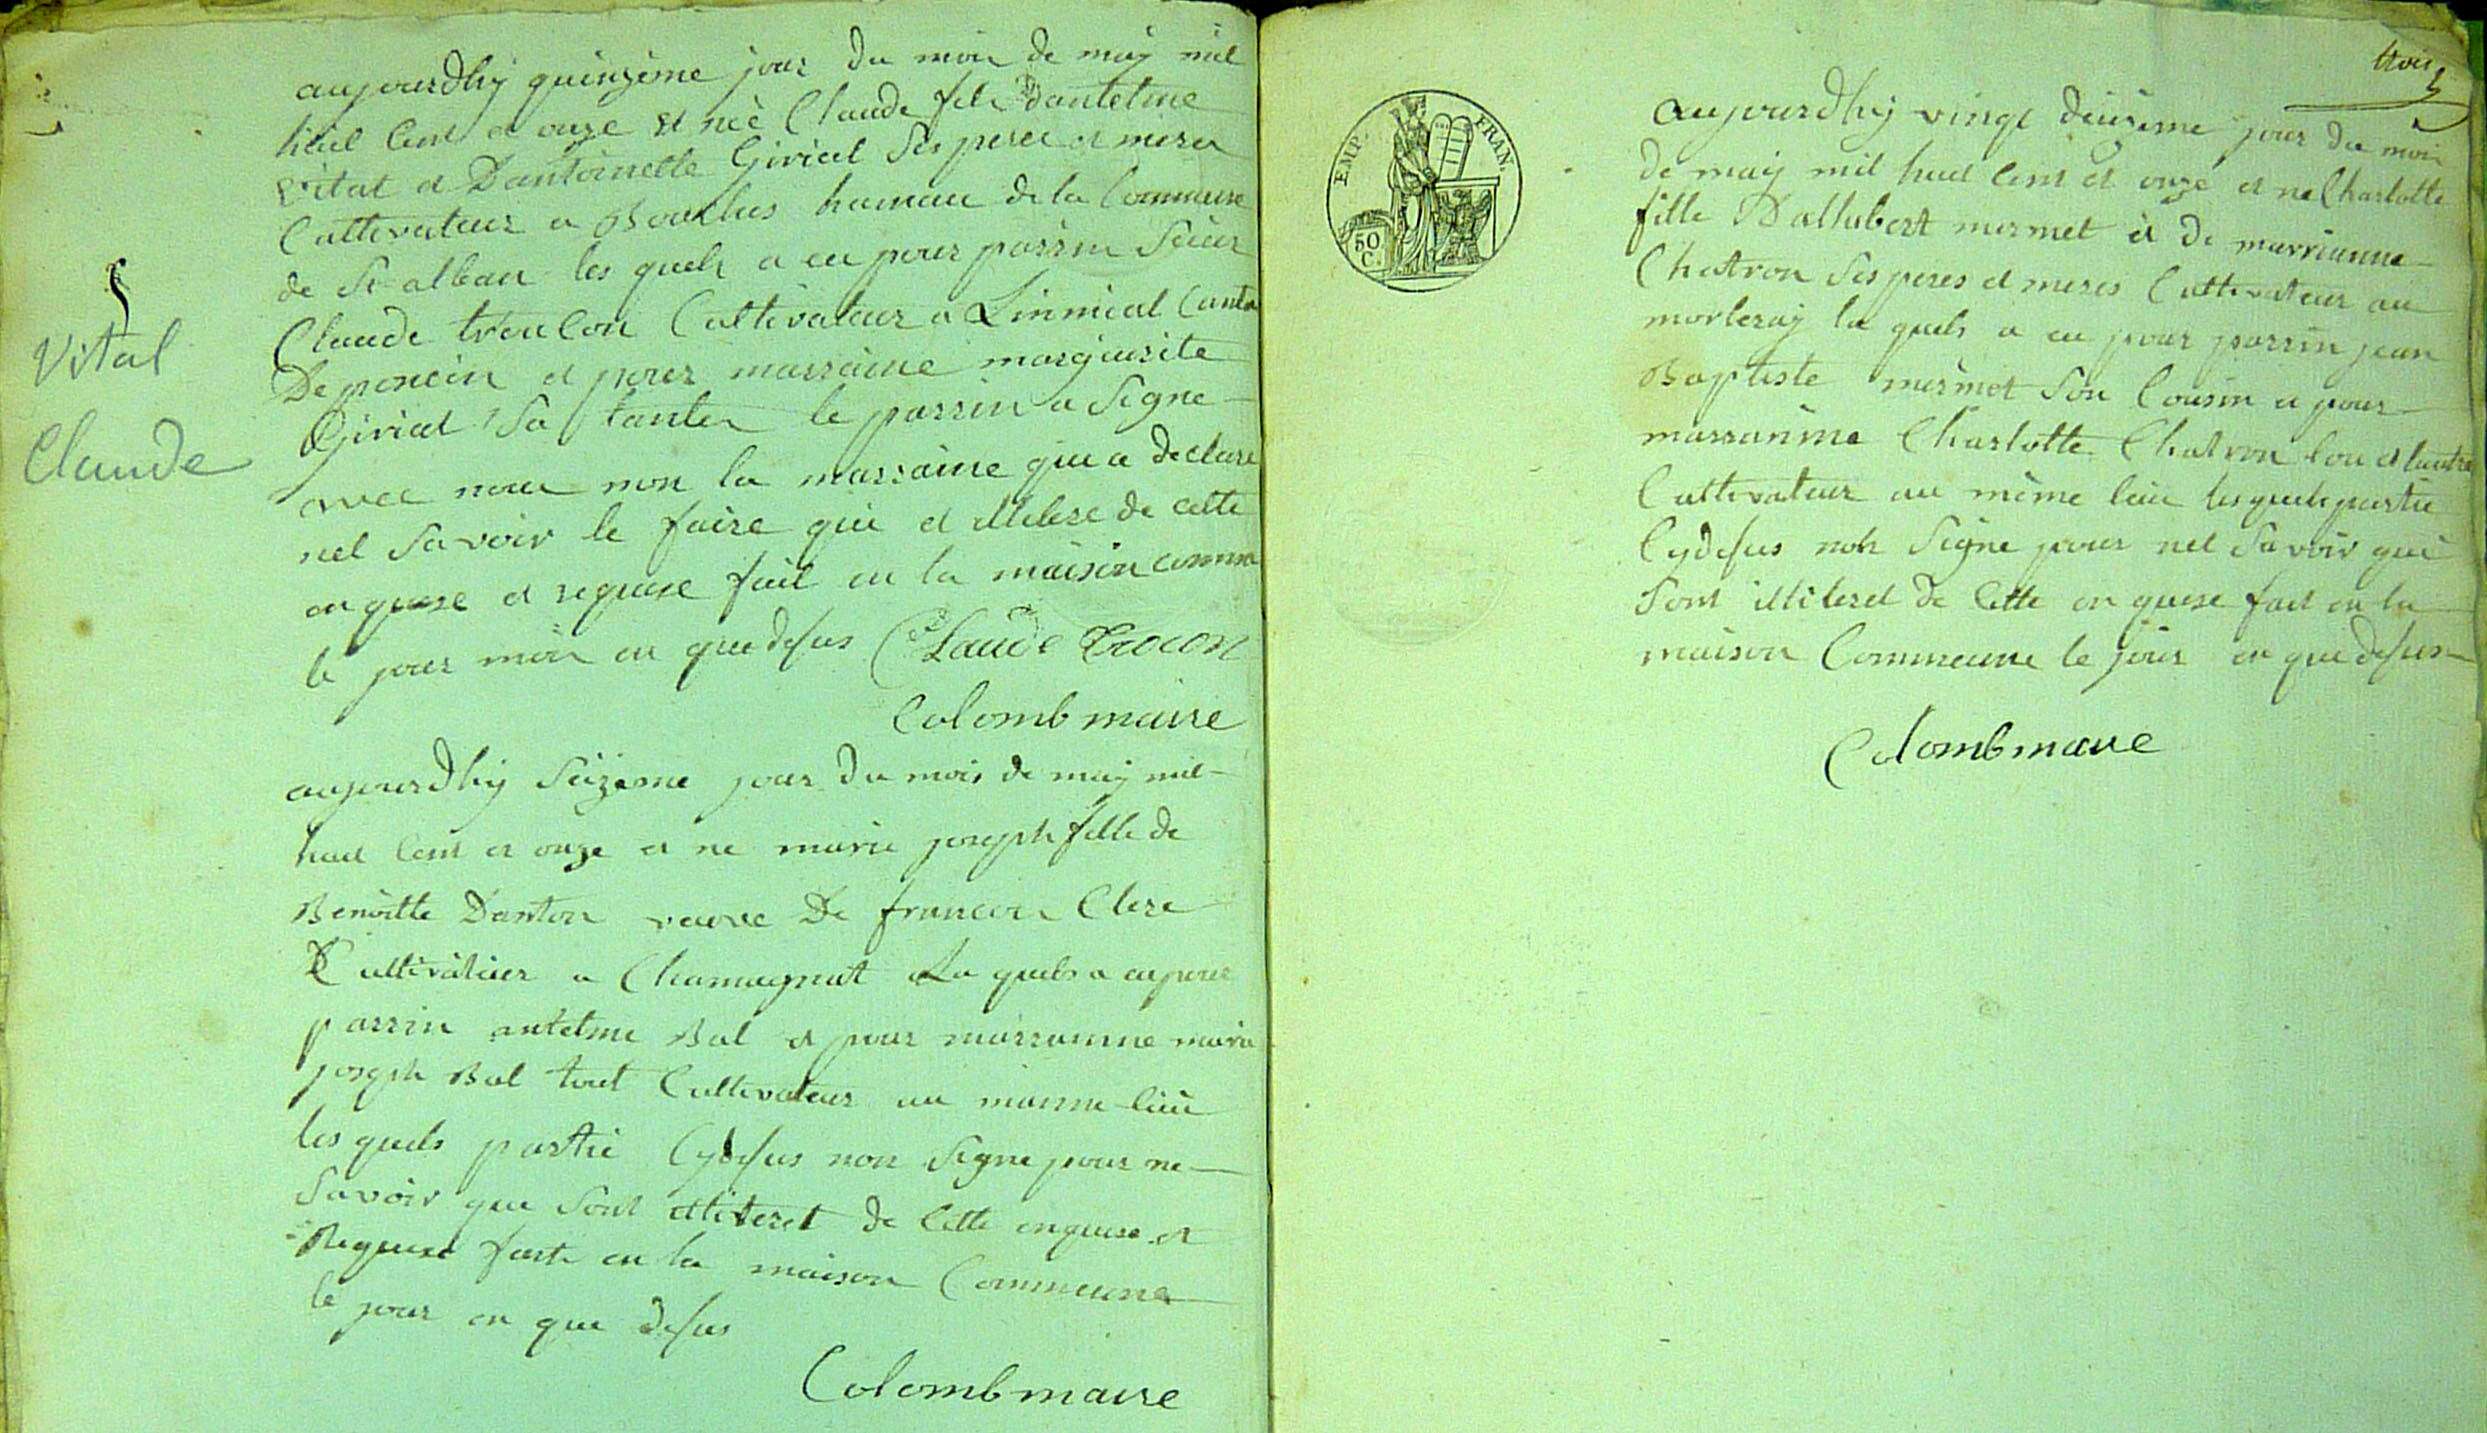 aujourdhij quinzeme jour du mois de maij mil
huit Cent et onze et neè Claude fils dantelme
vital et Dantoinette Giriat Ses peres et meres
Cultivateur a Bouchus hamau de la Commune
de St alban les quels a eu pour parrin Sieur
Claude troulon Cultivateur a Linnieat Canton
De poncin et pour marraine margurite
Giriat Sa tantes le parrin a Signe
avec nous non la marraine qui a declare
nel Savoir le faire qui et illiterè de cette
en quise et requise fait en la maison commu
le jour mois en que desus Claude Trocon
Colomb maire
Vital
Claude
aujourdhij Seizeme jour du mois de maij mil
huit Cent et onze et ne marie joseph fille de
Benoitte Danton veuve De francois Clere
Cultivateur a Chamagnat La quels a eu pour
parrin antelme Bal et pour marranine marie
joseph Bal tout Cultivateur au maime lieu
les quels partie Cydesus non Signe pour ne
Savoir que Sont illiteret de Cette enquise et
Requise faite en la maison Commeune
le jour en que desus
Colomb maire
trois
EMP. FRAN.
50 C.
aujourdhij vingt deuxeme jour du mois
de maij mil huit Cent et onze et ne Charlotte
fille Dalhubert mermet et de marrianne
Chatron Ses peres et meres Cultivateur au
morteray la quels a eu pour parrin jean
Baptiste mermet Son Cousin et pour
marranime Charlotte Chatron lon et lautre
Cultivateur au même lieu les quels partie
Cydesus non Signe pour nel Savoir qui
Sont illiteret de Cette en quise fait en la
maison Commeune le jour en que desus
Colomb maire